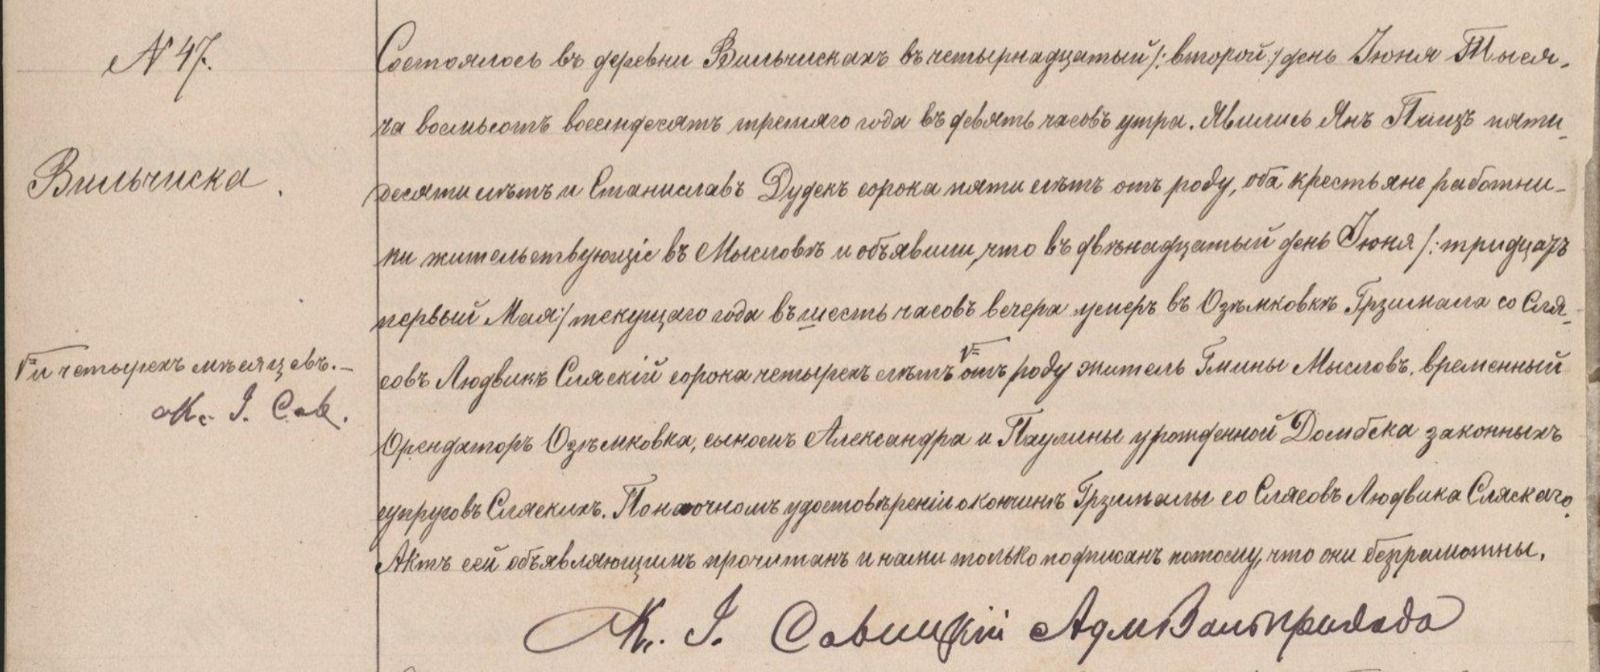 N 47.
Состоялось въ деревни Вильчискахъ въ четырнадцатый /:второй:/ день Іюня Тыся-
ча восмьсотъ восемдесятъ третяго года въ девять часовъ утра. Явились Янъ Пніцъ пяти-
Вильчиска.
десяти лѣтъ и Станиславъ Дудекъ сорока пяти лѣтъ отъ роду, оба крестьяне работни-
ки жительствующіе въ Мысловѣ и объявили, что въ двѣнадцатый день Іюня /:тридцать
первый Мая:/ текущаго года въ шесть часовъ вечера умеръ въ Озѣмковкѣ Грзимала со Сля-
и четырехъ мѣсяцевъ.—
совъ Людвикъ Сляскій сорока четырехъ лѣтъ отъ роду житель Гмины Мысловъ, временный
К. I. Сав.
Орендаторъ Озѣмковка, сыномъ Александра и Паулины урожденной Домбска законныхъ
супруговъ Сляскихъ. По наочномъ удостовѣреніи о кончинѣ Грзималы со Слясовъ Людвика Сляскаго.
Актъ сей объявляющимъ прочитанъ и нами только подписанъ потому, что они безграмотны.
К. I. Савицкій Адм